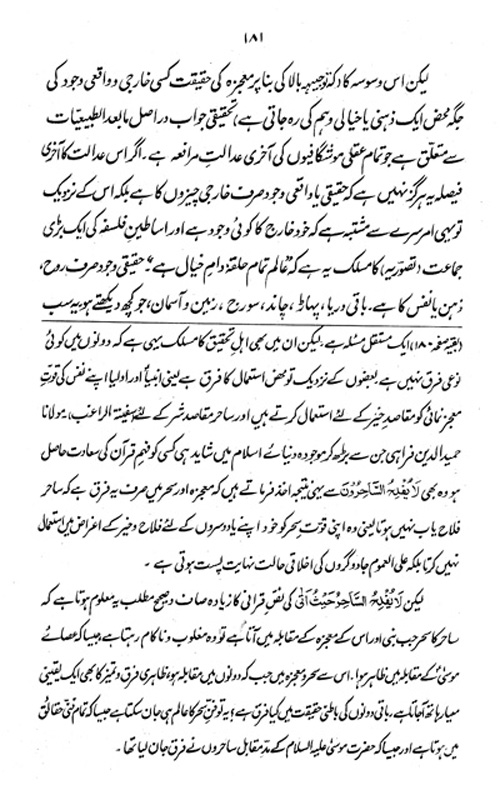 ۱۸۱
لیکن اس وسوسہ کا دکہ توجیہہ بالا کی بنا پر معجزہ کی حقیقت کسی خارجی و واقعی وجود کی
جگہ محض ایک ذہنی یا خیالی و وہم کی رہ جاتی ہے، تحقیقی جواب دراصل مابعد الطبیعیات
سے متعلق ہے جو تمام عقلی موشگافیوں کی آخری عدالتِ مرافعہ ہے۔ اگر اس عدالت کا آخری
فیصلہ یہ ہرگز نہیں ہے کہ حقیقی یا واقعی وجود صرف خارجی چیزوں کا ہے بلکہ اس کے نزدیک
تو یہی امر سرے سے مشتبہ ہے کہ خود خارج کا کوئی وجود ہے اور اساطینِ فلسفہ کی ایک بڑی
جماعت (تصوریہ) کا مسلک یہ ہے کہ "عالم تمام حلقۂ دامِ خیال ہے"۔ حقیقی وجود صرف روح،
ذہن یا نفس کا ہے۔ باقی دریا، پہاڑ، چاند، سورج، زمین و آسمان، جو کچھ دیکھتے ہو یہ سب
(بقیہ صفحہ ۱۸۰) ایک مستقل مسئلہ ہے، لیکن ان میں بھی اہلِ تحقیق کا مسلک یہی ہے کہ دونوں میں کوئی
نوعی فرق نہیں ہے بعضوں کے نزدیک تو محض استعمال کا فرق ہے یعنی انبیاؑ اور اولیا اپنے نفس کی قوتِ
معجز نمائی کو مقاصدِ خیر کے لئے استعمال کرتے ہیں اور ساحر مقاصدِ شر کے لئے (سفینۃ الراغب)، مولانا
حمید الدین فراہی جن سے بڑھ کر موجودہ دنیائے اسلام میں شاید ہی کسی کو فہمِ قرآن کی سعادت حاصل
ہو وہ بھی لَا یُفْلِحُ السَّاحِرُوْنَ سے یہی نتیجہ اخذ فرماتے ہیں کہ معجزہ اور سحر میں صرف یہ فرق ہے کہ ساحر
فلاح یاب نہیں ہوتا یعنی وہ اپنی قوتِ سحر کو خود اپنے یا دوسروں کے لئے فلاح و خیر کے اغراض میں استعمال
نہیں کرتا بلکہ علی العموم جادوگروں کی اخلاقی حالت نہایت پست ہوتی ہے ۔
لیکن لَا یُفْلِحُ السَّاحِرُ حَیْثُ اَتٰی کی نصِ قرآنی کا زیادہ صاف و صحیح مطلب یہ معلوم ہوتا ہے کہ
ساحر کا سحر جب نبی اور اس کے معجزہ کے مقابلہ میں آتا ہے تو وہ مغلوب و ناکام رہتا ہے جیسا کہ عصائے
موسیٰؑ کے مقابلہ میں ظاہر ہوا۔ اس سے سحر و معجزہ میں جب کہ دونوں میں مقابلہ ہو، ظاہری فرق و تمیز کا بھی ایک یقینی
معیار ہاتھ آجاتا ہے، باقی دونوں کی باطنی حقیقت میں کیا فرق ہے؟ یہ تو فنِ سحر کا عالم ہی جان سکتا ہے جیسا کہ تمام فنی حقائق
میں ہوتا ہے اور جیسا کہ حضرت موسیٰ علیہ السلام کے مدِ مقابل ساحروں نے فرق جان لیا تھا ۔